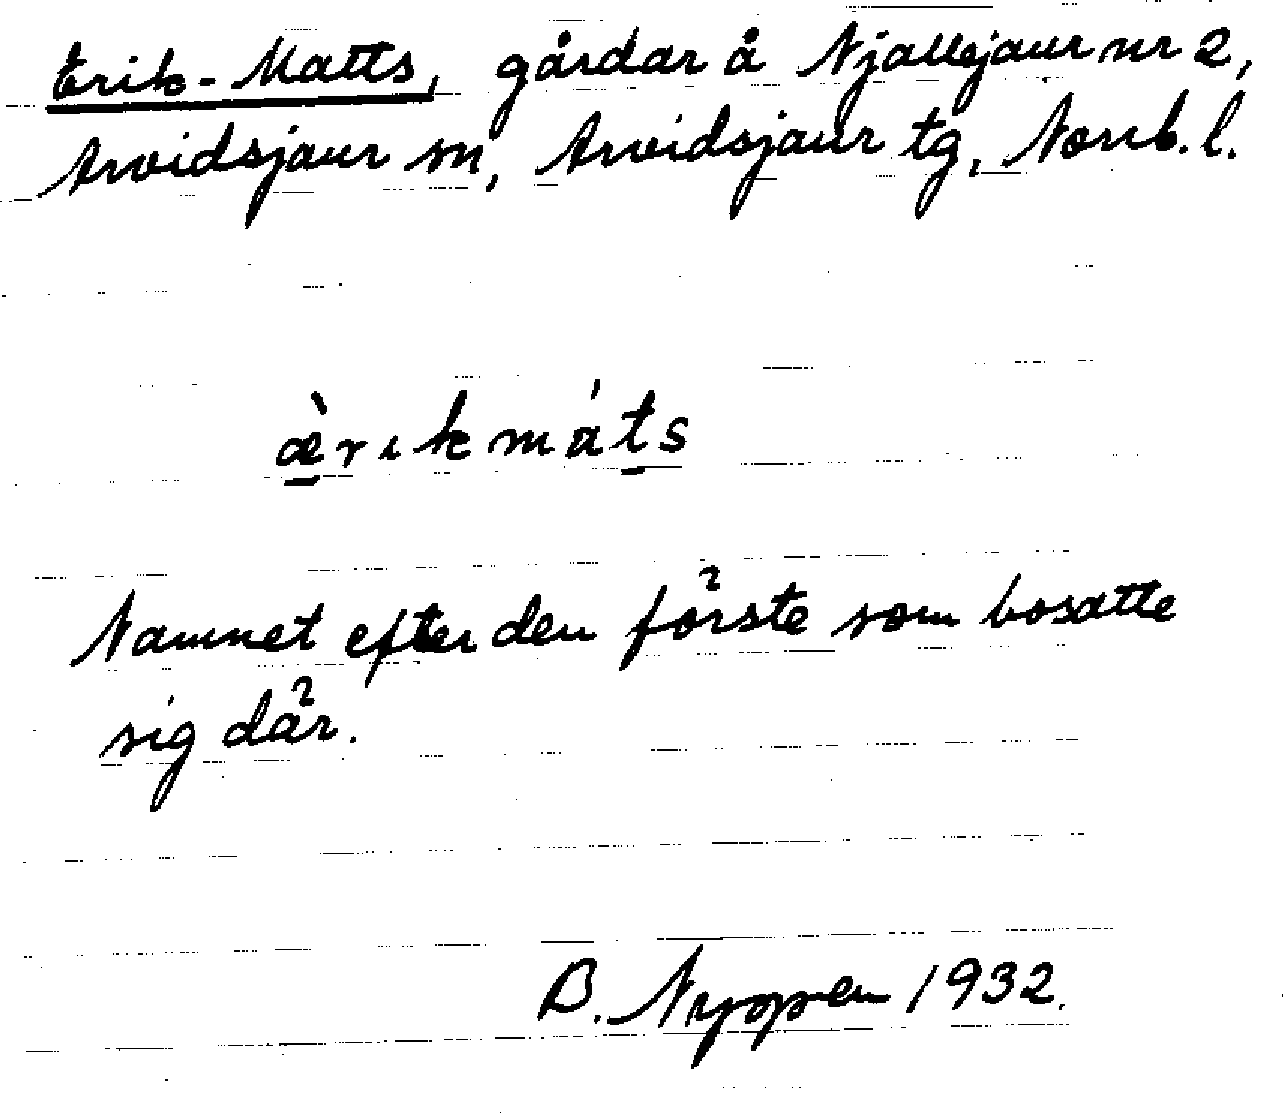 Erik-Matts, gårdar å Njallejaur nr 2,
Arvidsjaur sn, Arvidsjaur tg, Norrb. l.
æ̠̀rıkmát̠s
Namnet efter den förste som bosatte
sig där.
B. Nyppen 1932.